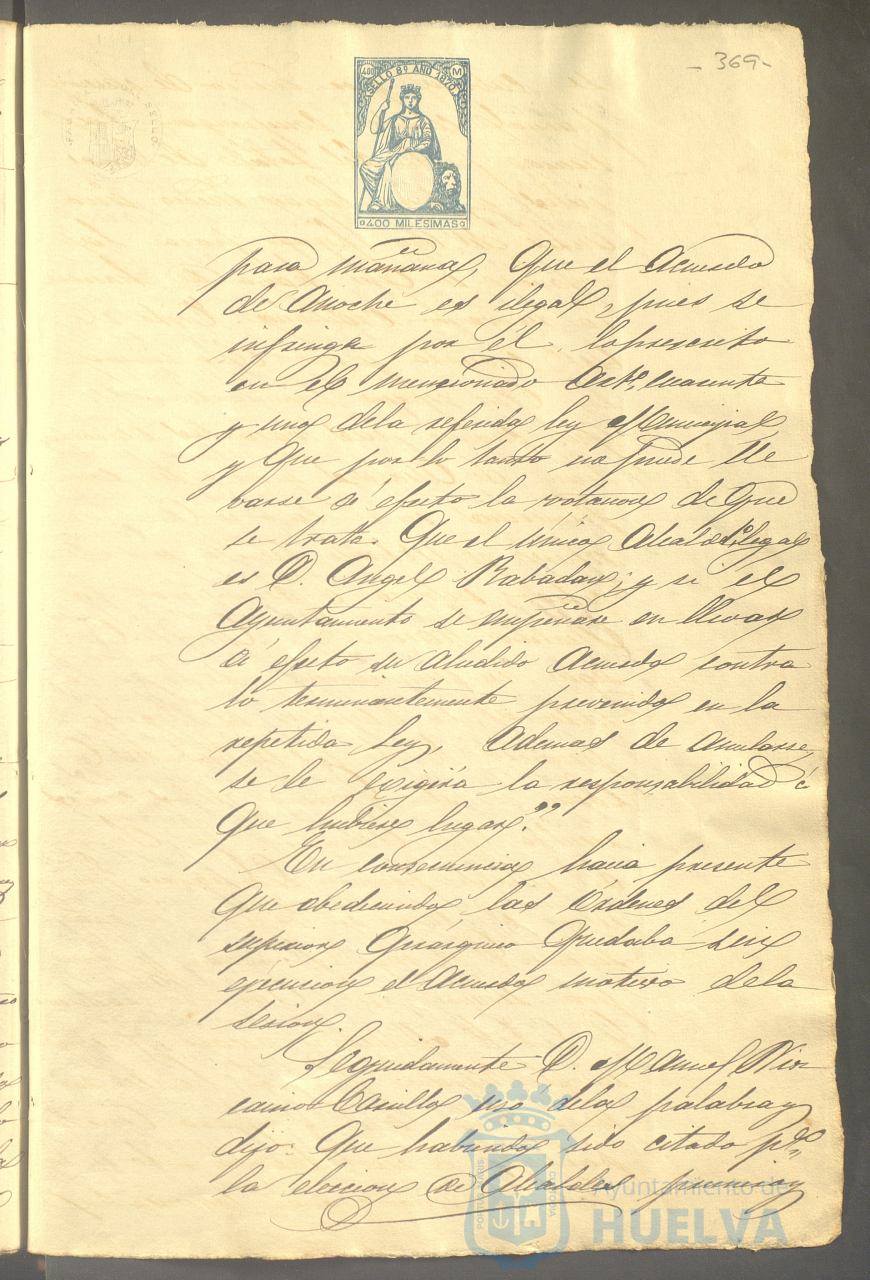 - 369 -
400 SELLO 8º AÑO 1870. M
400 MILESIMAS
para mañana, Que el Acuerdo
de Anoche es ilegal, pues se
infringe por él lo prescrito
en el mencionado Arto. cuarenta
y uno dela referida ley Municipal
y Que por lo tanto no puede lle
varse á efecto la votacion de Que
se trata. Que el único Alcalde 1º legal
es D. Angel Rabadan; y si el
Ayuntamiento se empeñase en llevar
á efecto su aludido Acuerdo contra
lo terminantemente prevenido en la
repetida Ley, Ademas de anularse,
se le exigirá la responsabilidad á
Que hubiere lugar."
En consecuencia hacia presente
Que obedeciendo las Ordenes del
superior Gerárquico Quedaba sin
ejecucion el Acuerdo motivo dela
sesion.
Seguidamente D. Manuel
Carrillo uso dela palabra y
dijo: Que habiendo sido citado pa.
la eleccion de Alcalde primero y
Ayuntamiento de
HUELVA